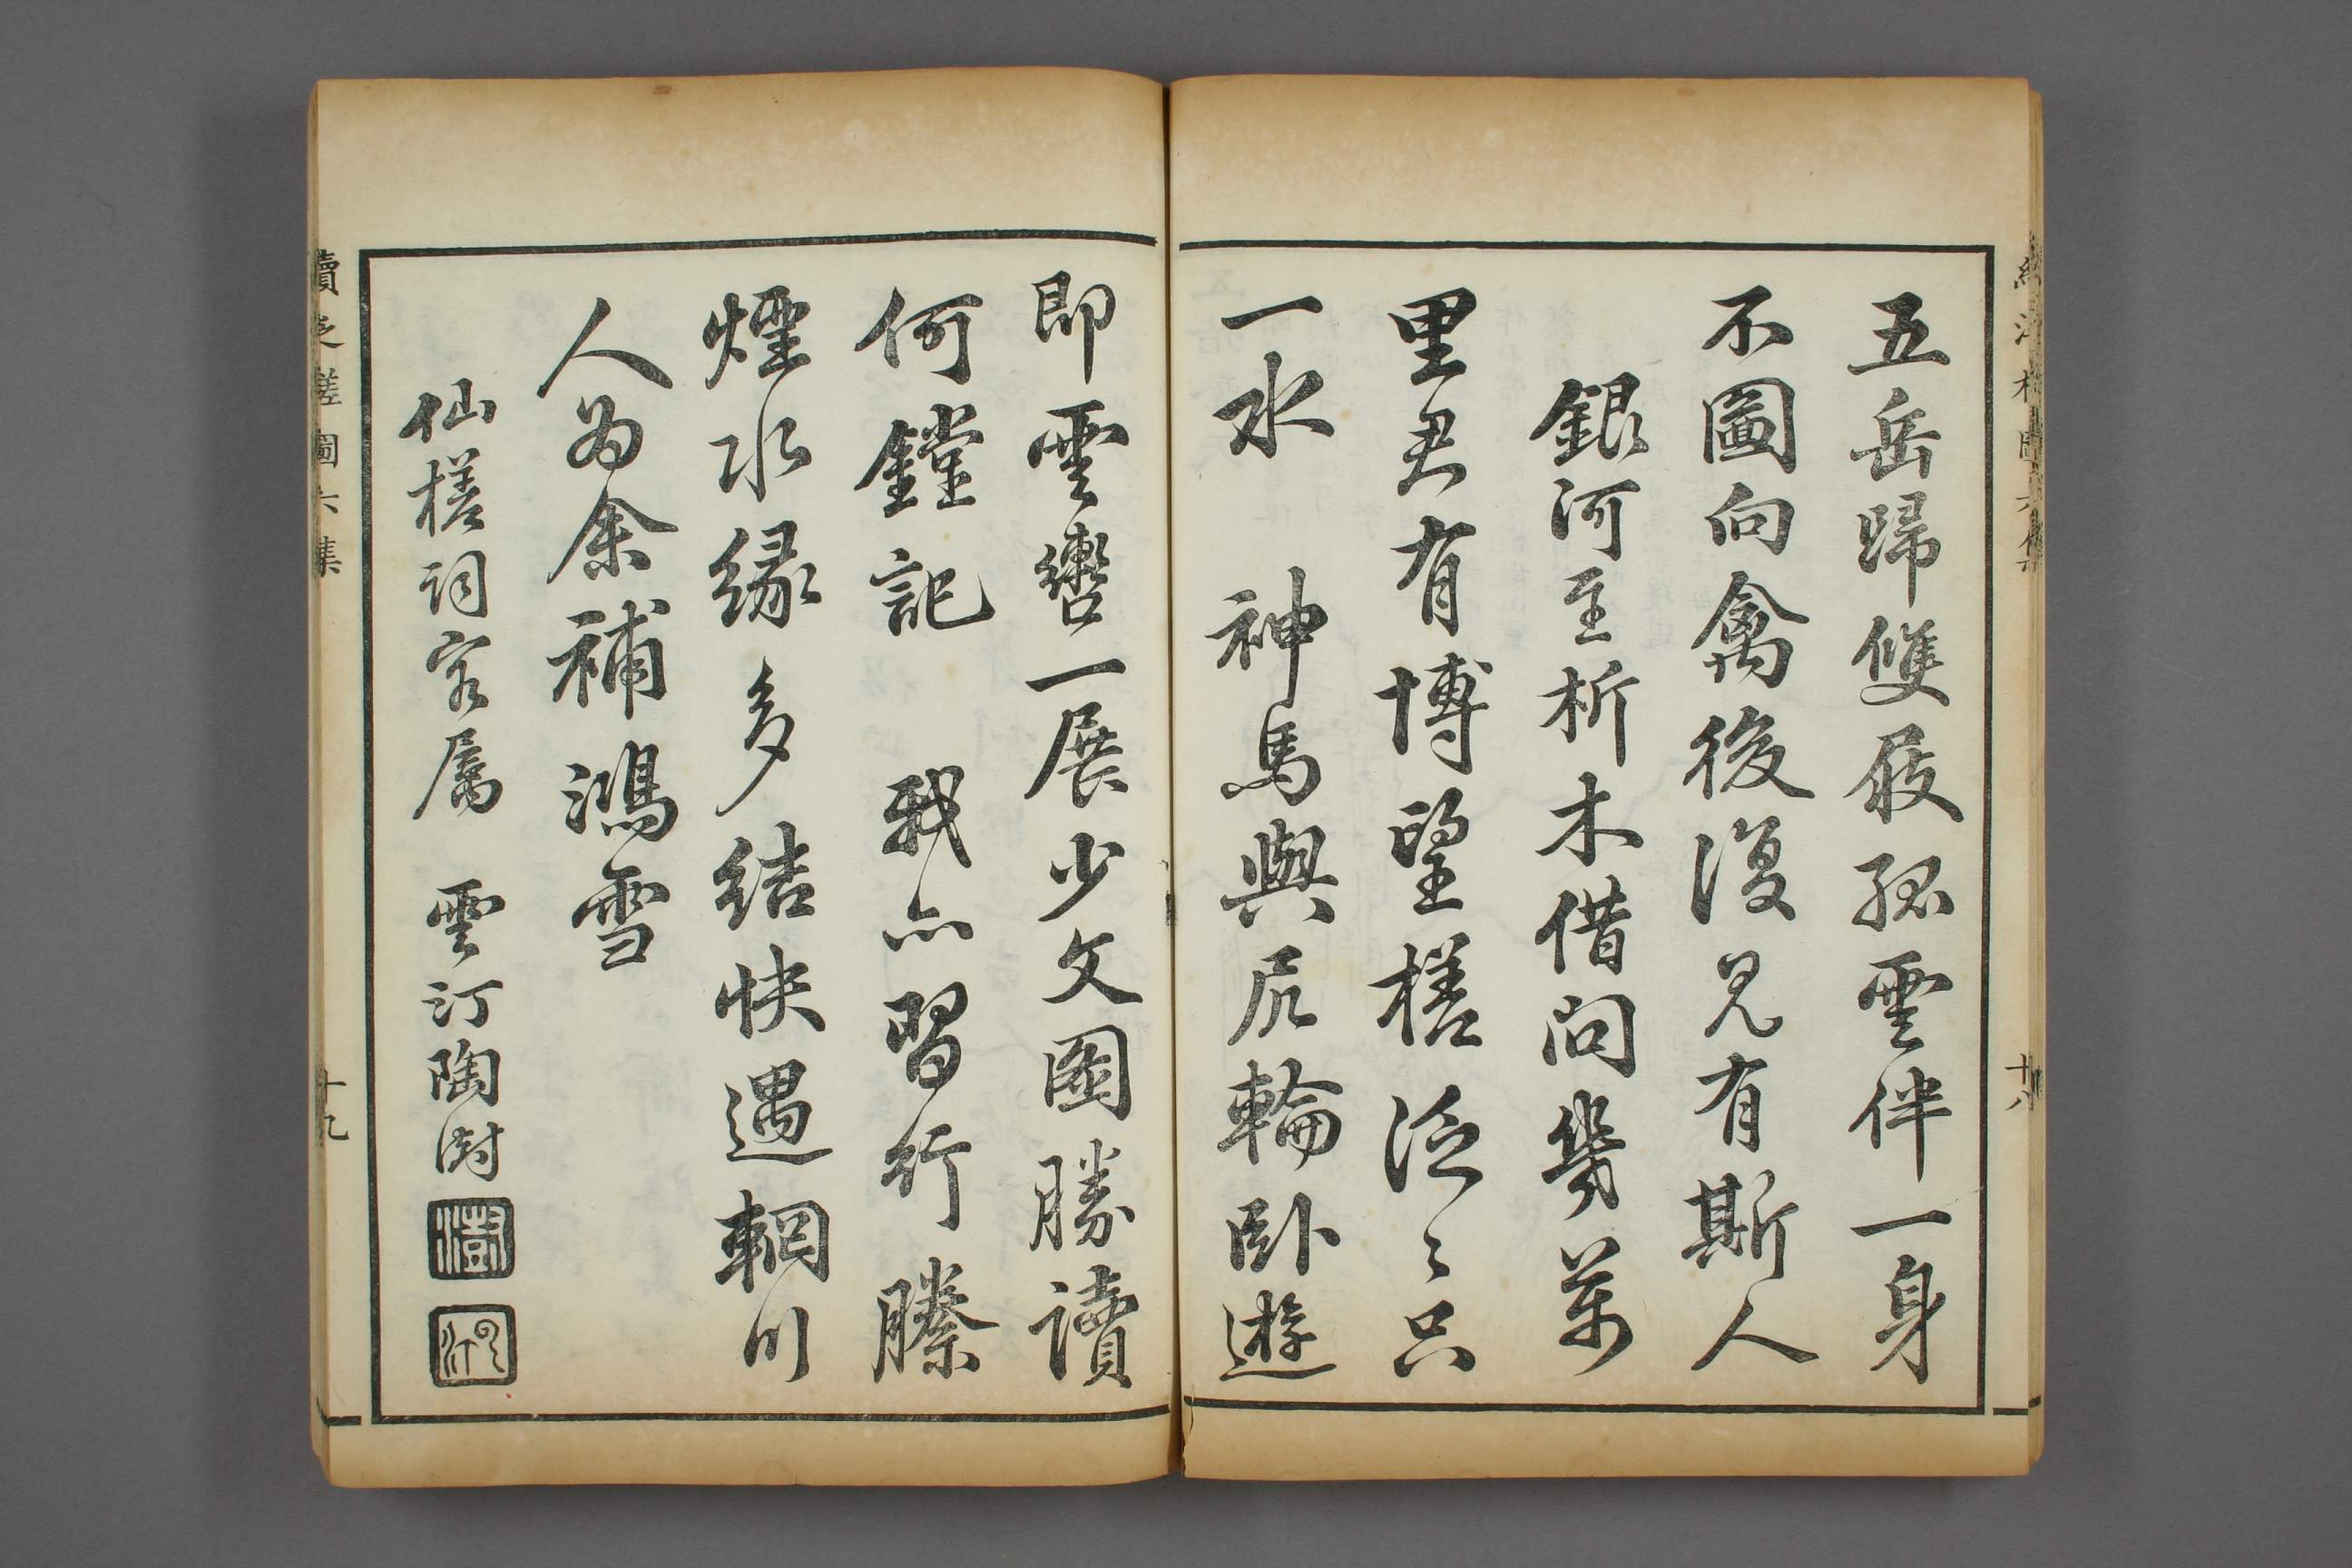 五岳歸雙屐孤雲伴一身
不圖向禽後復見有斯人
銀河至析木借問幾萬
里君有博望槎泛〻只
一水 神馬與尻輪臥遊
即雲巒一展少文圖勝讀
何鏜記 我亦習行縢
煙水緣多結快遇輞川
人為余補鴻雪
仙槎詞客屬 雲汀陶澍
澍
雲汀
續泛槎圖六集
十八
續泛槎圖六集
十九